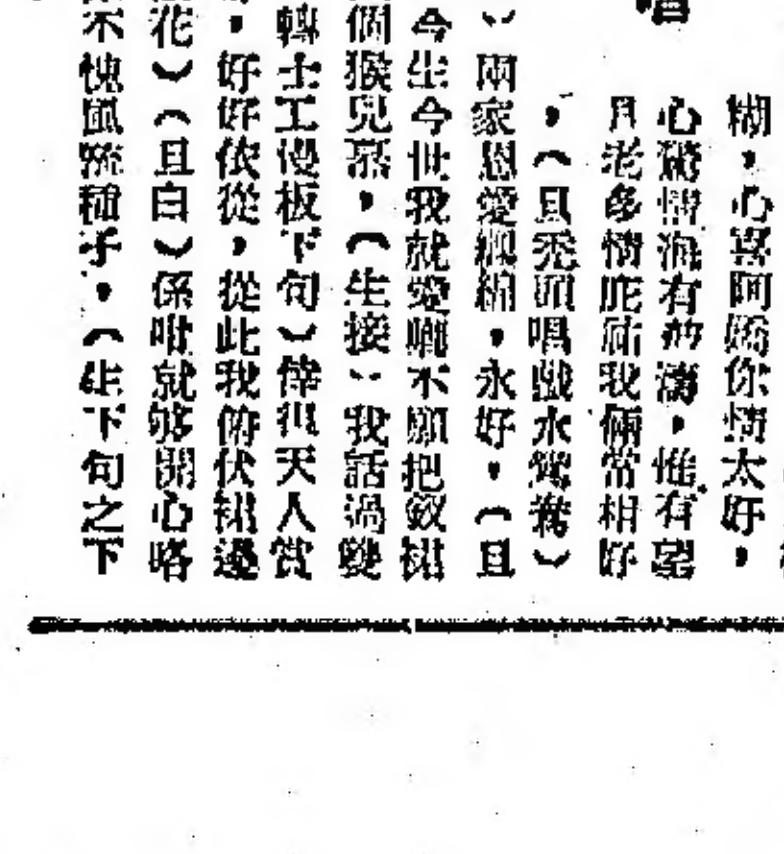 唱
糊，心喜阿嬌你情太好，
心驚情海有波濤，惟有望
月老多情庇祐我倆常相好
，（且禿頭唱戲水鴛鴦）
）兩家恩愛纏綿，永好，（且
今生今世我就愛嘅不願把釵裙
個猴兒 ，（生接）我話過變
轉士工慢板下句）倖得天人賞
，好好依從，從此我俯伏裙邊
花）（且白）係咁就够開心咯
不愧風流種子，（生下句之下